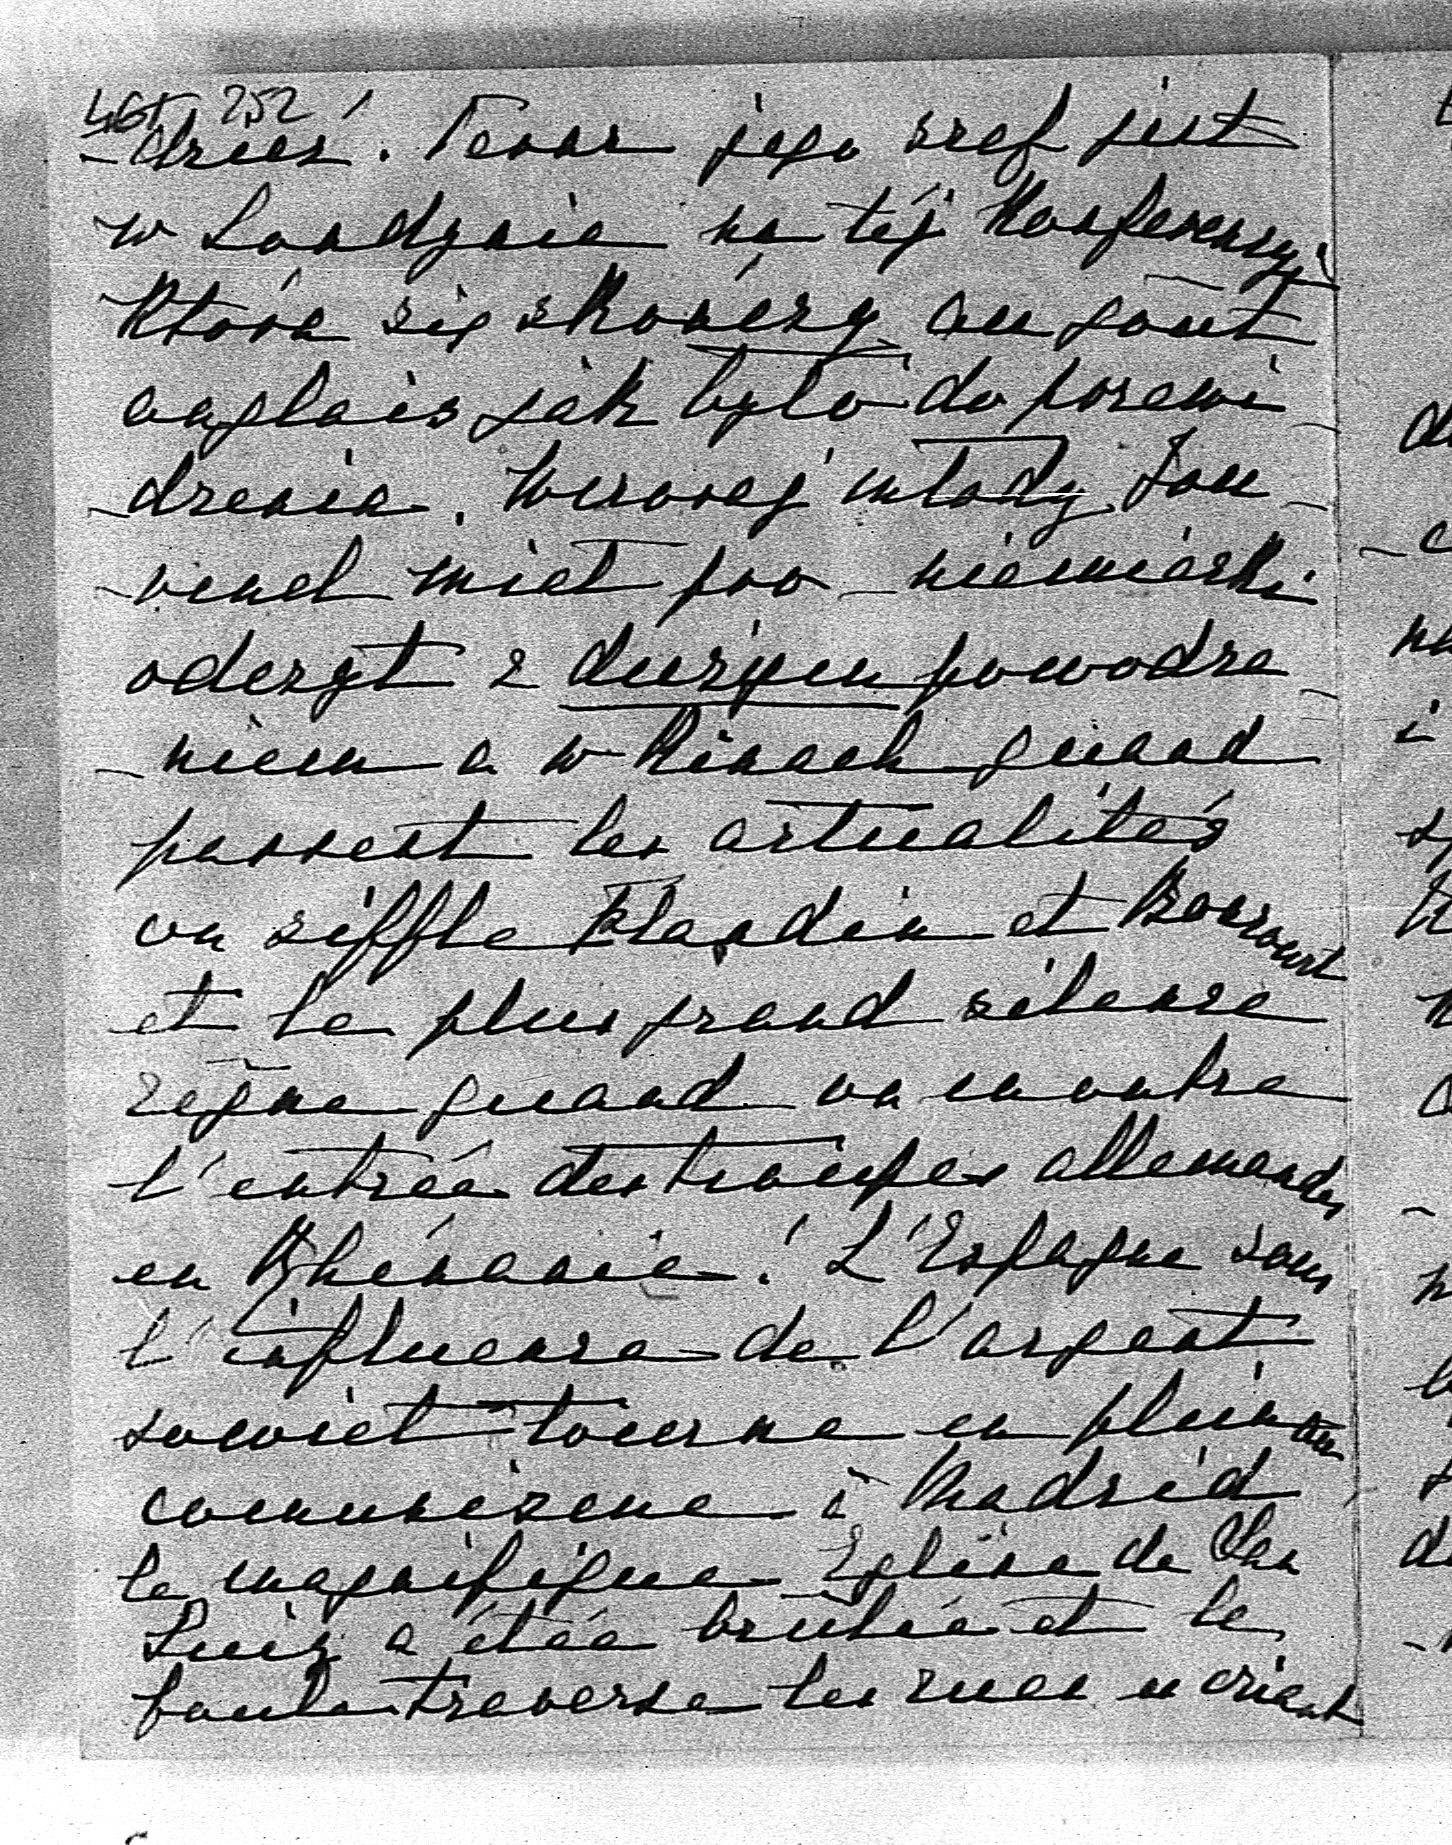 252
-dzieć. Teraz jego szef jest
w Londynie na téj Konferencyi
Która się skończy au goût
anglais jak było do przewi
-dzenia. Wczoraj młody Jou
-venel miał po niemiecki
odczyt z dużym powodze
-niem a w Kinach quand
passent les actualités
on siffle Flandin et Boncourt
et le plus grand silence
règne quand on montre
l'entrée des troupes allemandes
en Rhénanie! L'Espagne sous
l'influence de l'argent
soviet tourne en plein au
communisme à Madrid
la magnifique Eglise de San
Luiz a étée brûlée et la
foule traverse les rues en criant